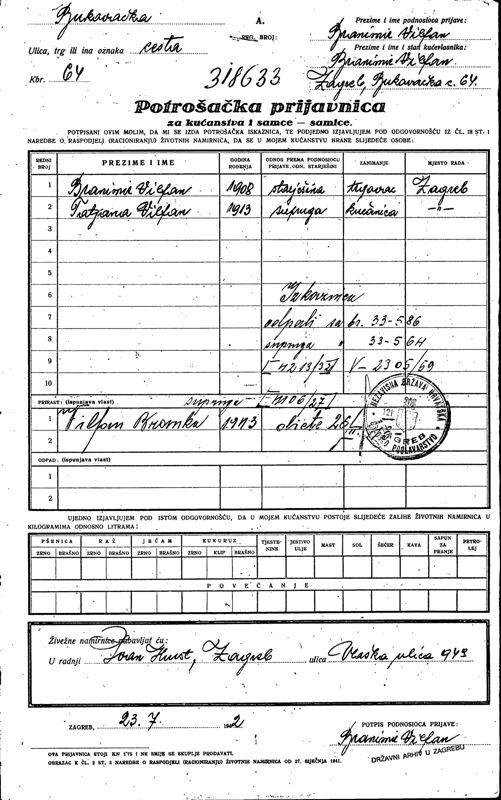 Bukovačka
A.
Prezime i ime podnosioca prijave:
Branimir Vilfan
Ulica, trg ili ina oznaka cesta
REG. BROJ:
Prezime i ime i stan kućevlasnika:
Branimir Vilfan
Kbr. 64
318633
Zagreb, Bukovačka c. 64
Potrošačka prijavnica
za kućanstva i samce — samice.
POTPISANI OVIM MOLIM, DA MI SE IZDA POTROŠAČKA ISKAZNICA, TE PODJEDNO IZJAVLJUJEM POD ODGOVORNOŠĆU IZ ČL. 18 ST. 1
NAREDBE O RASPODJELI (RACIONIRANJU) ŽIVOTNIH NAMIRNICA, DA SE U MOJEM KUĆANSTVU HRANE SLIJEDEĆE OSOBE:
REDNI BROJ PREZIME I IME GODINA ROĐENJA ODNOS PREMA PODNOSIOCU PRIJAVE, ODN. STARJEŠINI ZANIMANJE MJESTO RADA
1 Branimir Vilfan 1908 starješina trgovac Zagreb
2 Tatjana Vilfan 1913 supruga kućanica —„—
3
4
5
6 Iskaznica
7 br. 33-586
8 supruga " 33-564
9 V-2305/69
10
PRIRAST: (ispunjava vlast) supruga
1 Vilfan 1943 dijete 26
2
NEZAVISNA DRŽAVA HRVATSKA
ZAGREB
OTPAD: (ispunjava vlast)
1
2
UJEDNO IZJAVLJUJEM POD ISTOM ODGOVORNOŠĆU, DA U MOJEM KUĆANSTVU POSTOJE SLIJEDEĆE ZALIHE ŽIVOTNIH NAMIRNICA U
KILOGRAMIMA ODNOSNO LITRAMA:
PŠENICA RAŽ JEČAM KUKURUZ TJESTENINE JESTIVO ULJE MAST SOL ŠEĆER KAVA SAPUN ZA PRANJE PETROLEJ
ZRNO BRAŠNO ZRNO BRAŠNO ZRNO BRAŠNO ZRNO KLIP BRAŠNO
POVEĆANJE
Živežne namirnice nabavljat ću:
U radnji Ivan Zagreb ulica Vlaška ulica
ZAGREB, 23.7. 1942
POTPIS PODNOSIOCA PRIJAVE:
Branimir Vilfan
DRŽAVNI ARHIV U ZAGREBU
OVA PRIJAVNICA STOJI KN 1.75 I NE SMIJE SE SKUPLJE PRODAVATI.
OBRAZAC K ČL. 2 ST. 2 NAREDBE O RASPODJELI (RACIONIRANJU) ŽIVOTNIH NAMIRNICA OD 27. SIJEČNJA 1941.